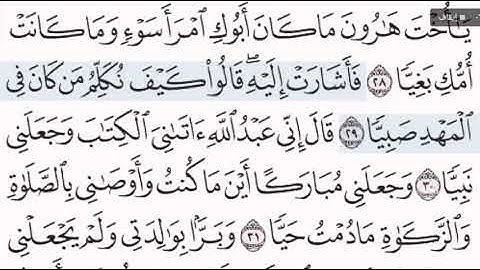 يَٰٓأُخْتَ هَٰرُونَ مَا كَانَ أَبُوكِ ٱمْرَأَ سَوْءٍ وَمَا كَانَتْ
أُمُّكِ بَغِيًّا ٢٨ فَأَشَارَتْ إِلَيْهِ ۖ قَالُوا۟ كَيْفَ نُكَلِّمُ مَن كَانَ فِى
ٱلْمَهْدِ صَبِيًّا ٢٩ قَالَ إِنِّى عَبْدُ ٱللَّهِ ءَاتَىٰنِىَ ٱلْكِتَٰبَ وَجَعَلَنِى
نَبِيًّا ٣٠ وَجَعَلَنِى مُبَارَكًا أَيْنَ مَا كُنتُ وَأَوْصَٰنِى بِٱلصَّلَوٰةِ
وَٱلزَّكَوٰةِ مَا دُمْتُ حَيًّا ٣١ وَبَرًّۢا بِوَٰلِدَتِى وَلَمْ يَجْعَلْنِى